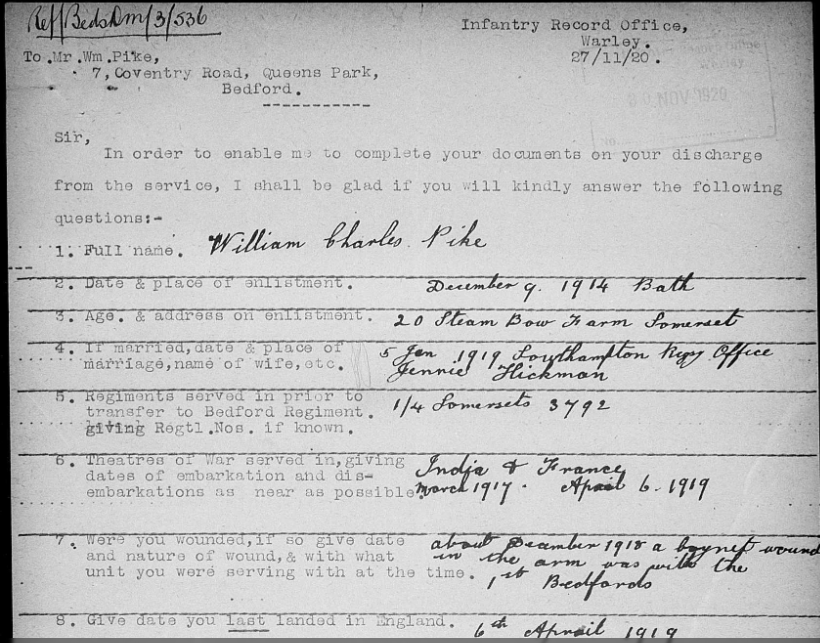 Ref/Beds Dm/3/536
Infantry Record Office,
Warley.
27/11/20.
To Mr.Wm.Pike,
7, Coventry Road, Queens Park,
Bedford.
30 NOV 1920
Sir,
In order to enable me to complete your documents on your discharge
from the service, I shall be glad if you will kindly answer the following
questions:-
1. Full name. William Charles Pike
2. Date & place of enlistment. December 9. 1914 Bath
3. Age. & address on enlistment. 20 Steam Bow Farm Somerset
4. If married,date & place of marriage,name of wife,etc. 5 Jan 1919 Southampton Regy Office
Jennie Hickman
5. Regiments served in prior to
transfer to Bedford Regiment. 1/4 Somersets 3792
giving Regtl.Nos. if known.
6. Theatres of War served in,giving India & France
dates of embarkation and dis-
embarkations as near as possible. March 1917. April 6. 1919
7. Were you wounded,if so give date about Deamber 1918 a baynet wound
and nature of wound,& with what in the arm was with the
unit you were serving with at the time. 1st Bedfords
8. Give date you last landed in England. 6th Aprail 1919